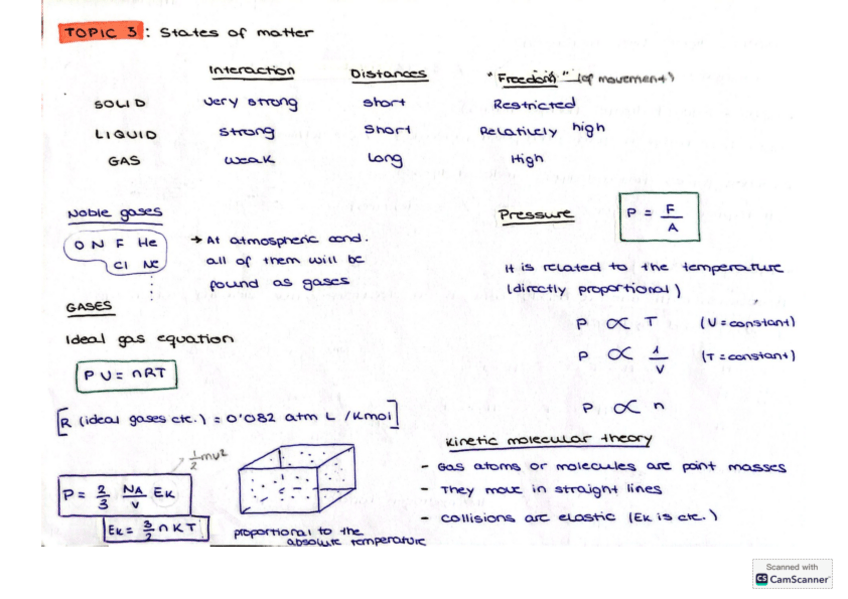 TOPIC 3: States of matter
Interaction Distances "Freedom" (of movement)
SOLID very strong short Restricted
LIQUID strong short Relatively high
GAS weak Long High
Noble gases
O N F He
Cl Ne
→ At atmospheric cond.
all of them will be
found as gases
Pressure P = F/A
It is related to the temperature
(directly proportional)
P ∝ T (V = constant)
P ∝ 1/V (T = constant)
P ∝ n
GASES
Ideal gas equation
PV = nRT
[R (ideal gases ctc.) = 0'082 atm L /Kmol]
1/2 mv²
P = 2/3 NA/V Ek
Ek = 3/2 n K T
proportional to the
absolute temperature
Kinetic molecular theory
- Gas atoms or molecules are point masses
- They move in straight lines
- collisions are elastic (Ek is ctc.)
Scanned with
CS CamScanner